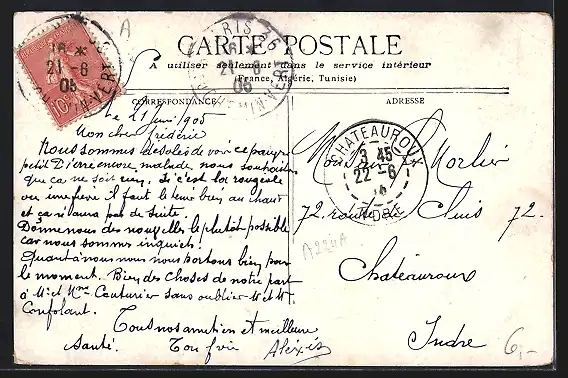 CARTE POSTALE
A utiliser seulement dans le service intérieur
(France, Algérie, Tunisie)
CORRESPONDANCE
ADRESSE
Le 21 Juin 1905
Mon cher Frédéric
Nous sommes désolés de voir ce pauvre
petit Pierre encore malade, nous souhaitons
que ça ne soit rien, si c'est la rougeole
ou une fièvre il faut le tenir bien au chaud
et ça n'aura pas de suite.
Donne nous des nouvelles le plutôt possible
car nous sommes inquiets.
Quant à nous nous nous portons bien pour
le moment. Bien des choses de notre part
à Mr et Mme Couturier sans oublier Mr et Me
Confolant.
Tous nos amitiés et meilleure
santé. Ton frère Alexis
Monsieur Le Morlier
72. route de Tours 72.
Châteauroux
Indre
CHATEAUROUX
3 45
22 -6
INDRE
21 -6
05
16
21 -6
05
10
A
A224A
6,-